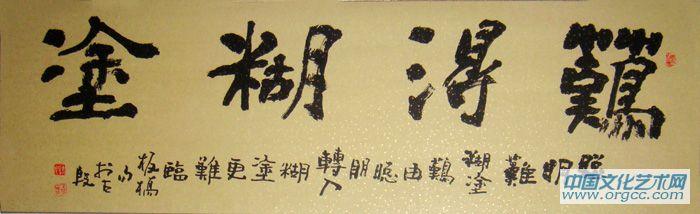 難得糊塗
聰明難糊塗難由聰明轉入糊塗更難臨板橋
中国文化艺术网
www.orgcc.com